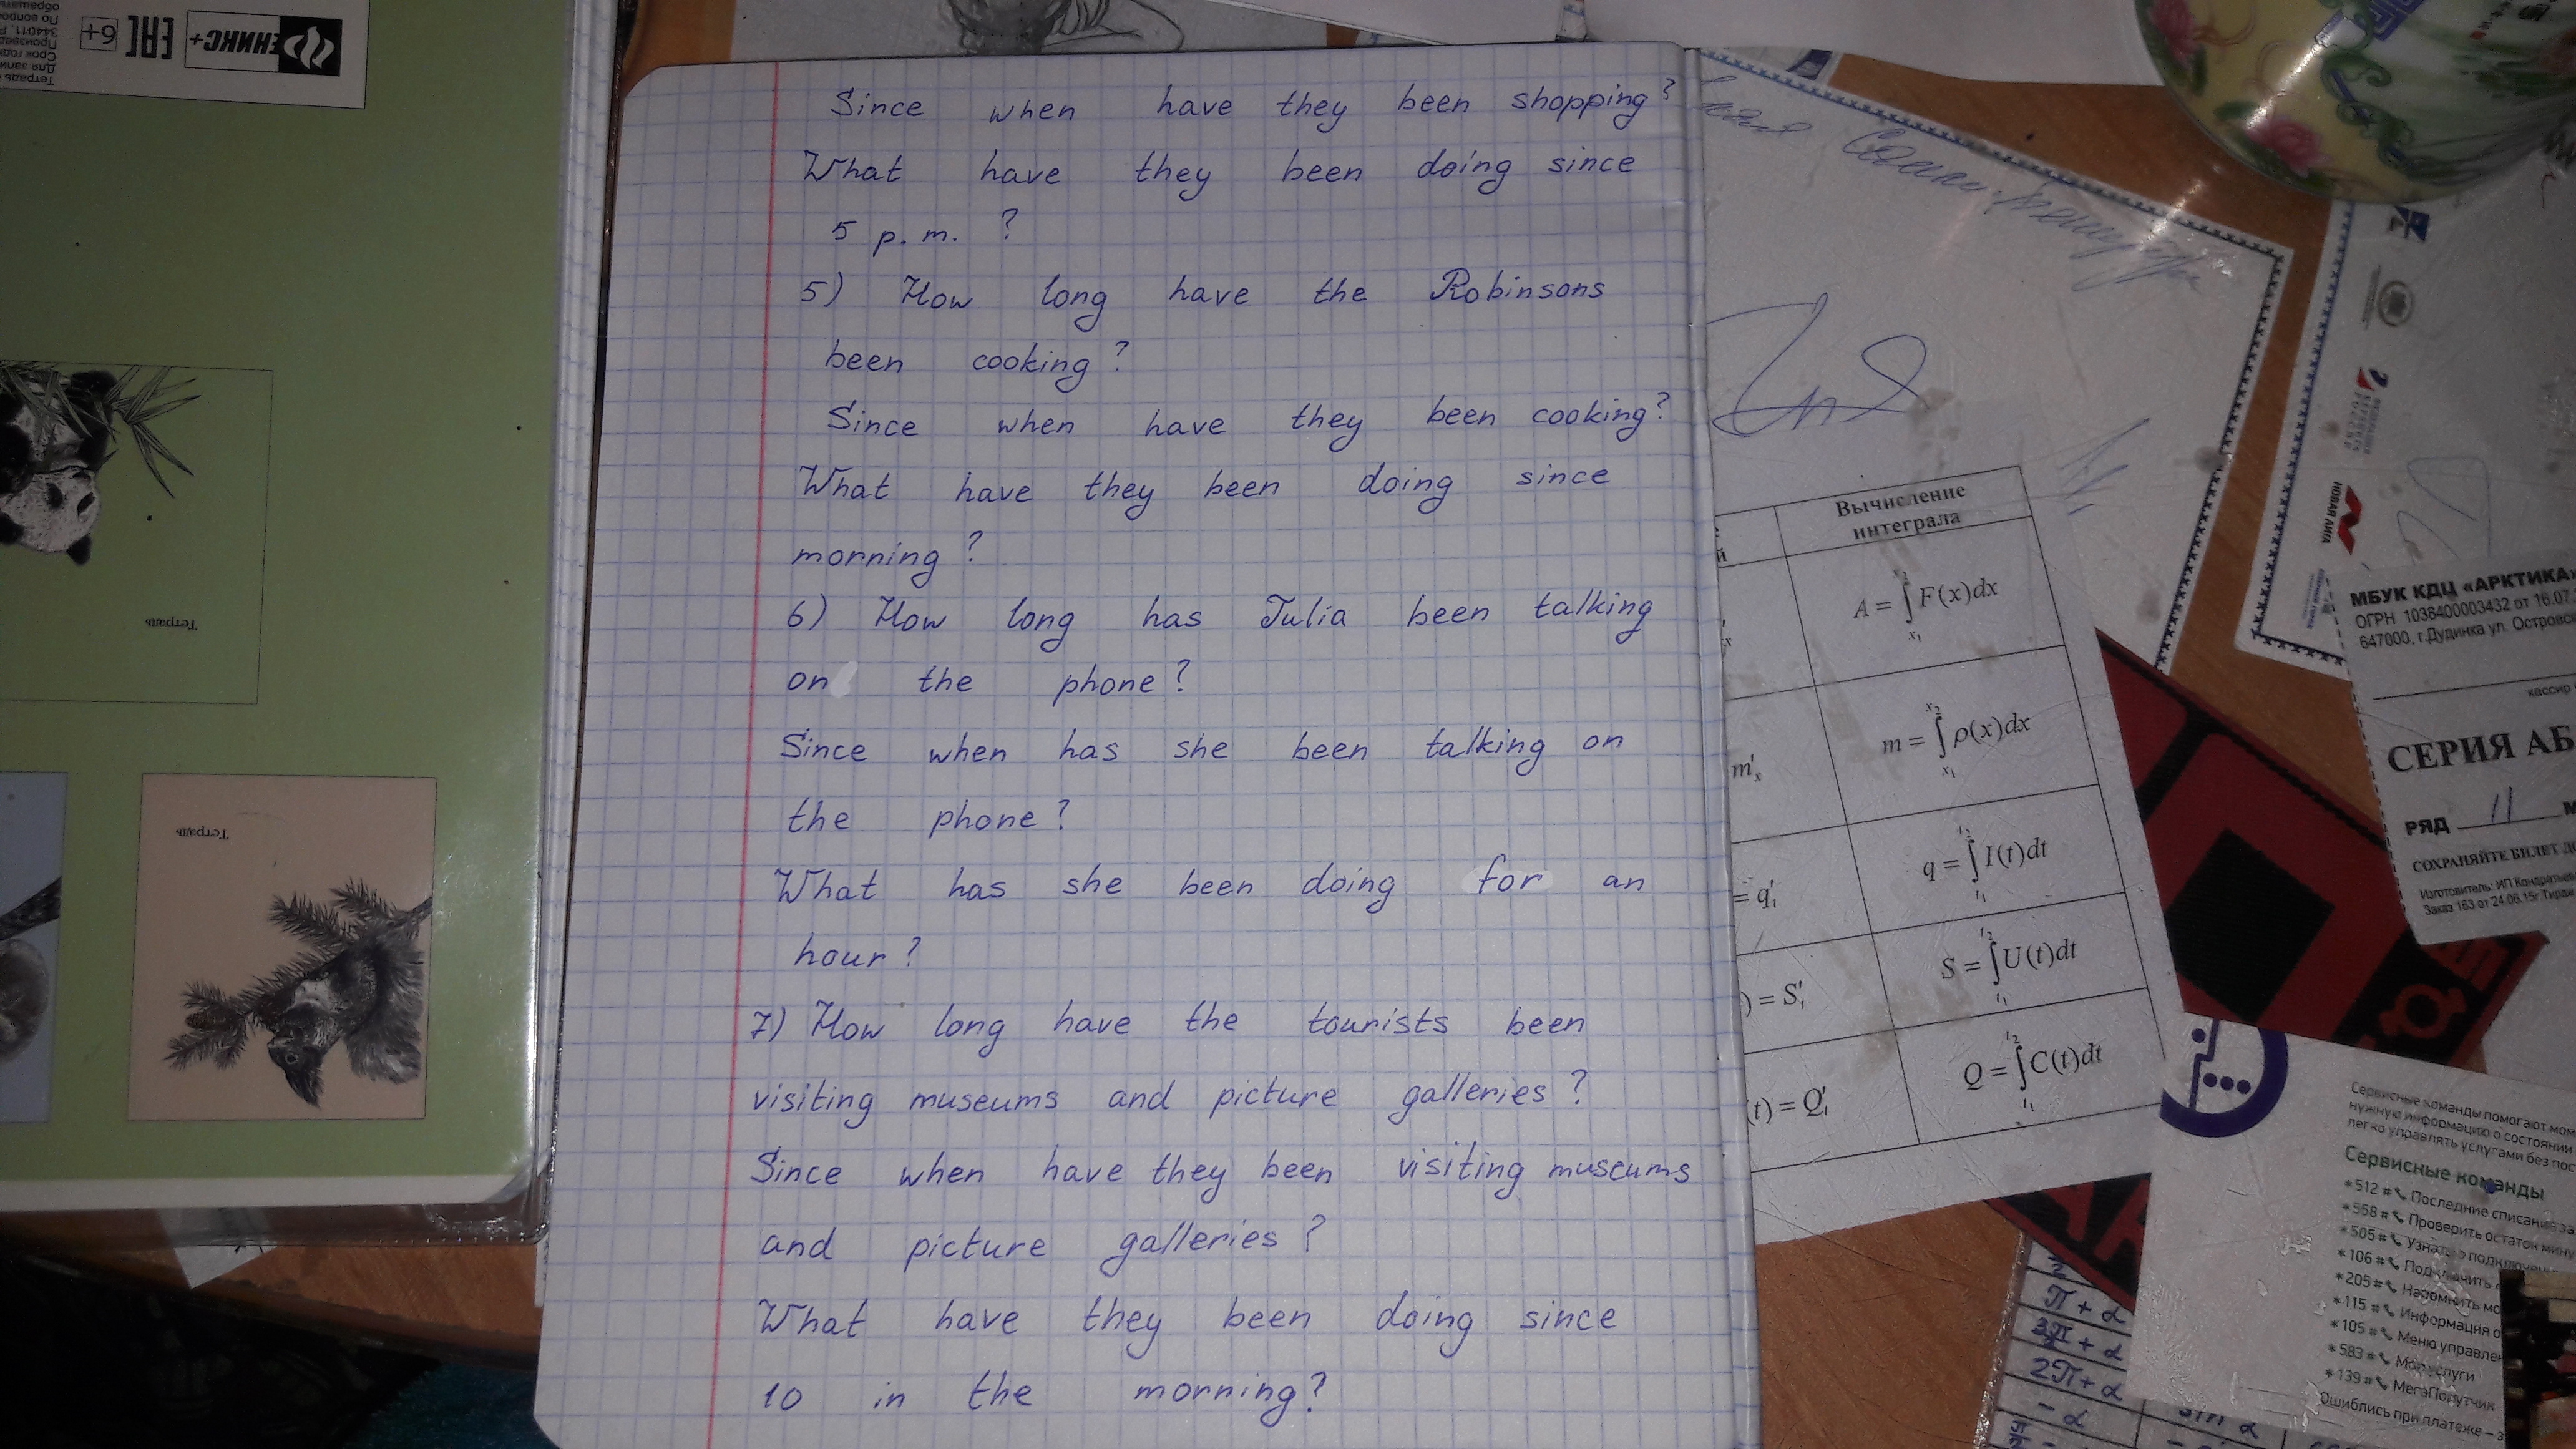 Since when have they been shopping?
What have they been doing since
5 p.m. ?
5) How long have the Robinsons
been cooking?
Since when have they been cooking?
What have they been doing since
morning?
6) How long has Julia been talking
on the phone?
Since when has she been talking on
the phone?
What has she been doing for an
hour?
7) How long have the tourists been
visiting museums and picture galleries?
Since when have they been visiting museums
and picture galleries?
What have they been doing since
10 in the morning?
ЕНИКС+
EAC
6+
Тетрадь
Тетрадь
Вычисление
интеграла
A = ∫ F(x)dx
m = ∫ ρ(x)dx
q = ∫ I(t)dt
S = ∫ U(t)dt
Q = ∫ C(t)dt
НОВАЯ ЛИГА
МБУК КДЦ «АРКТИКА»
ОГРН 1038400003432 от 16.07.
647000, г.Дудинка ул. Островск
кассир
СЕРИЯ АБ
РЯД 11
СОХРАНЯЙТЕ БИЛЕТ ДО
Изготовитель: ИП Кондратьев
Заказ 163 от 24.06.15г Тираж
Сервисные команды помогают мом
нужную информацию о состоянии
легко управлять услугами без пос
Сервисные команды
*512# Последние списания за
*558# Проверить остаток мину
*505# Узнать о подключенн
*106# Подключить
*205# Напомнить мо
*115# Информация о
*105# Меню управлен
*583# Мои услуги
*139# МегаПопутчик
Ошиблись при платеже – з
π + α
2π + α
- α
sin α